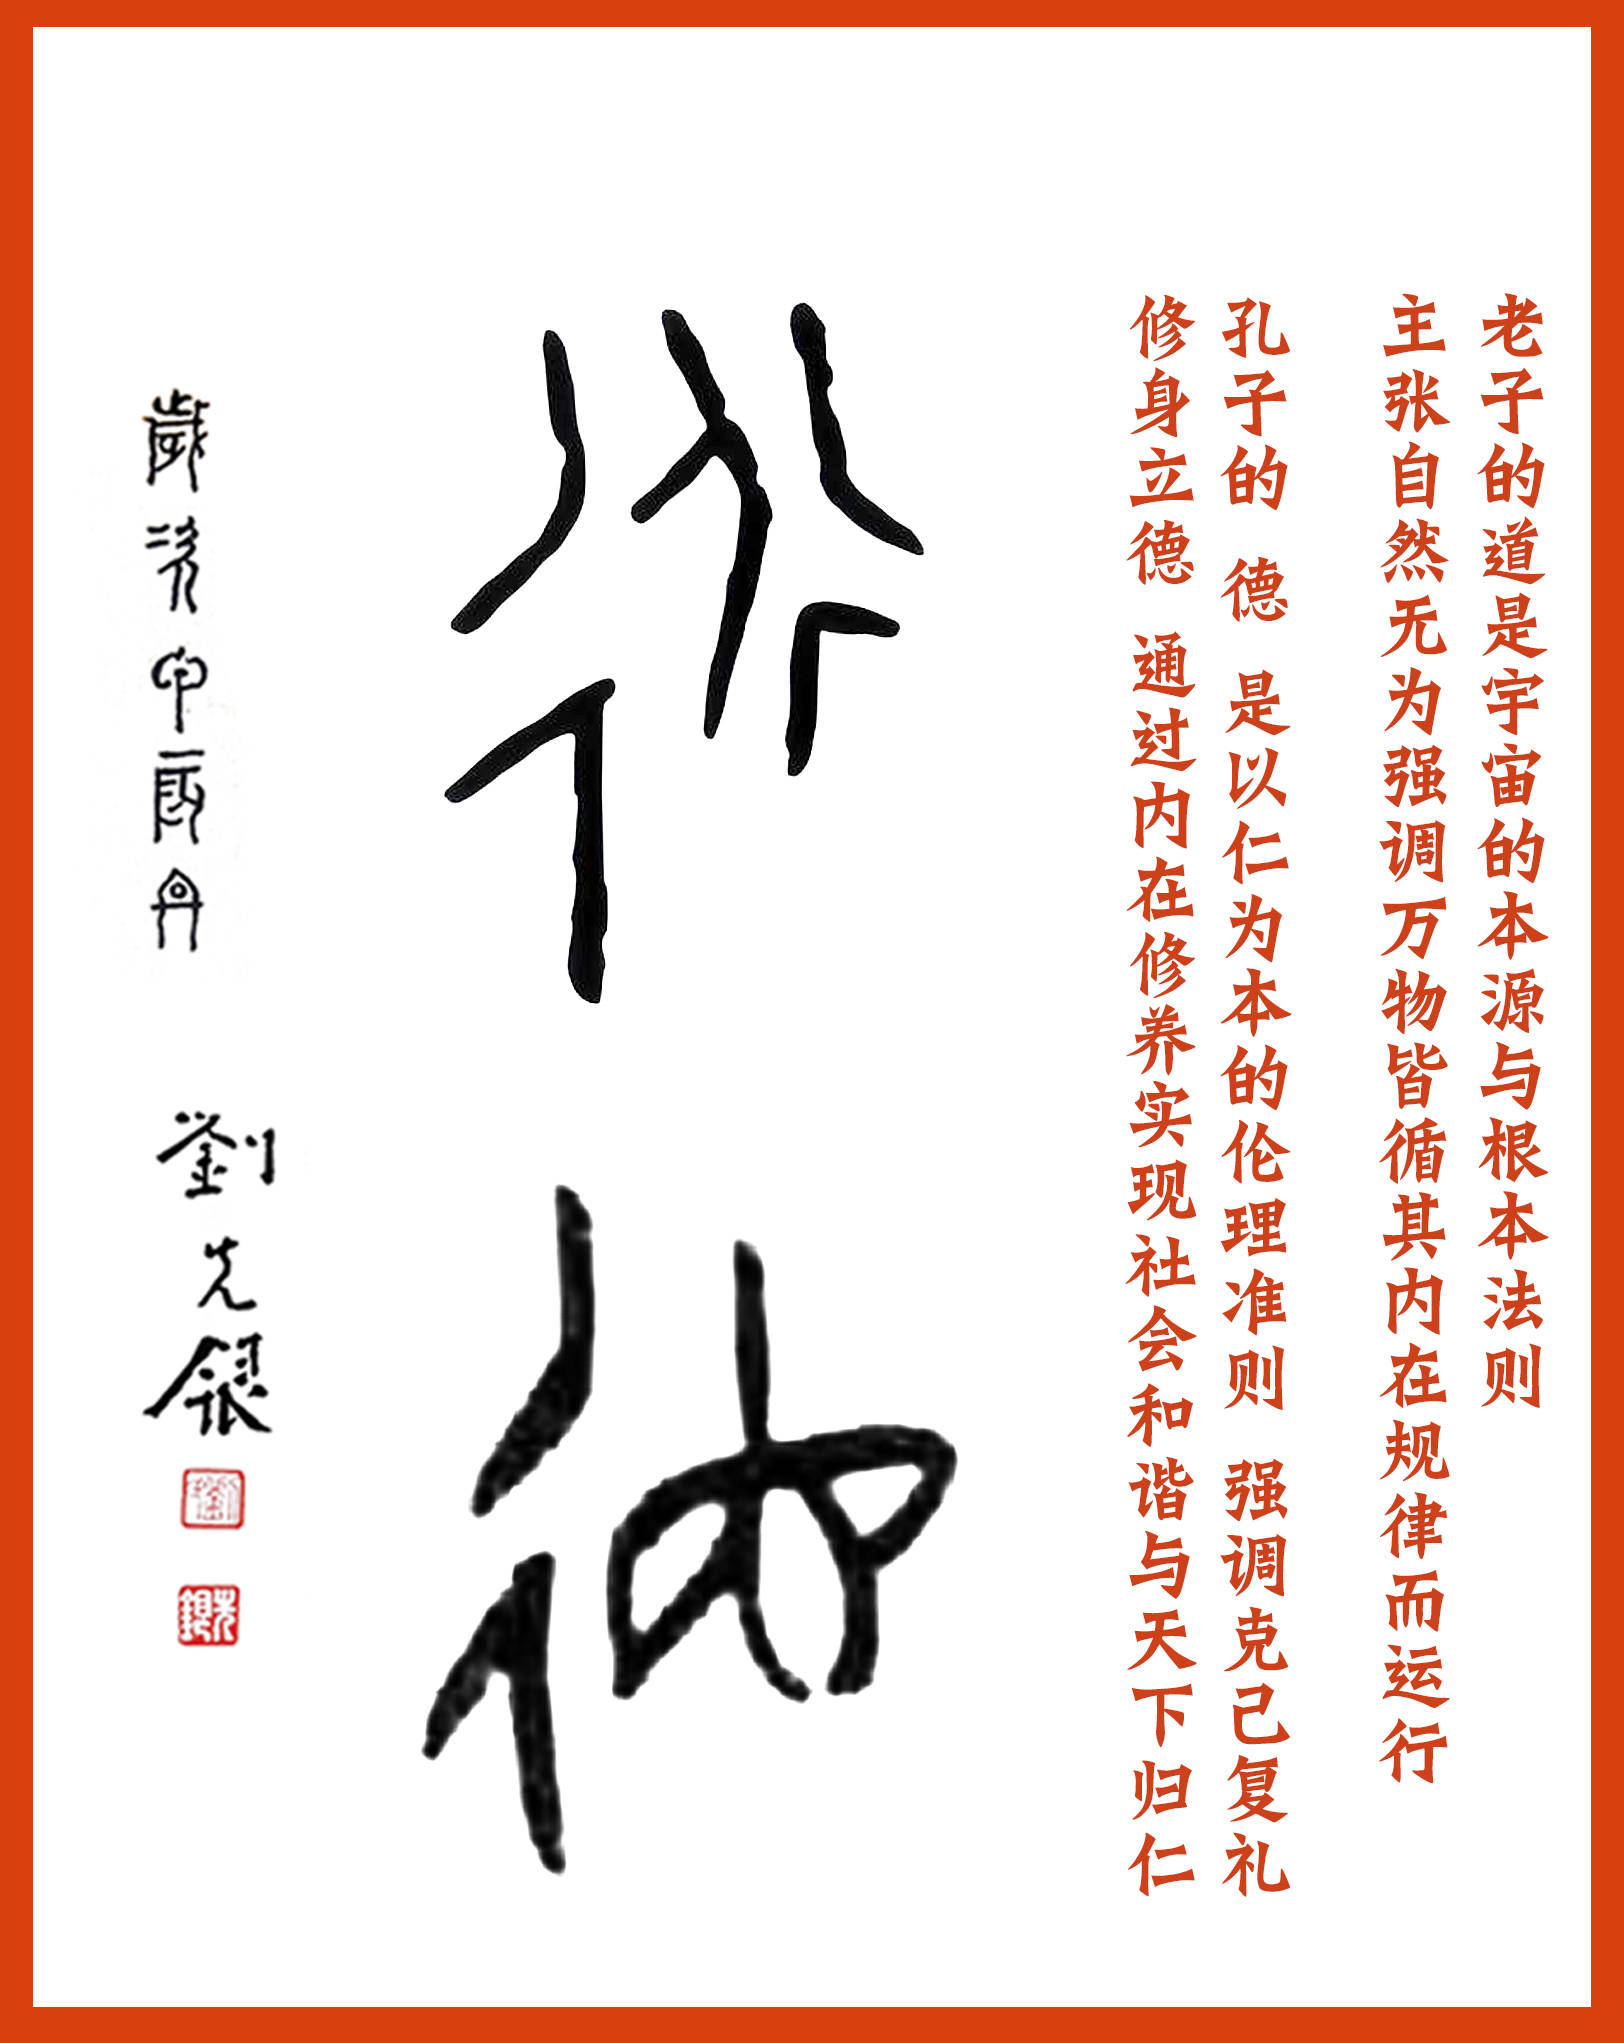 老子的道是宇宙的本源与根本法则
主张自然无为强调万物皆循其内在规律而运行
孔子的 德 是以仁为本的伦理准则 强调克己复礼
修身立德 通过内在修养实现社会和谐与天下归仁
道德
歲次甲辰丹
劉先銀